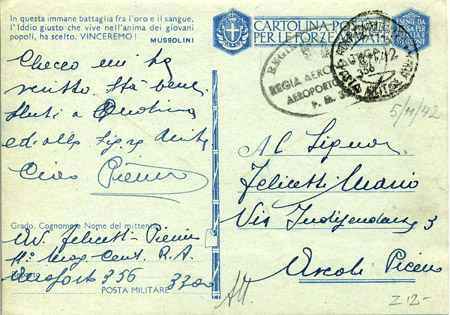 In questa immane battaglia fra l'oro e il sangue,
l'Iddio giusto che vive nell'anima dei giovani
popoli, ha scelto. VINCEREMO!
MUSSOLINI
Checco mi ha
scritto. Sta bene.
Saluti a
ed alla
Ciao Pierino
Grado, Cognome e Nome del mittente
Av. Felicetti Pierino
Mag. Cent. R. A.
Aeroporto 356 3300
POSTA MILITARE
CARTOLINA POSTALE
PER LE FORZE ARMATE
REGIA AERONAUTICA
AEROPORTO
P. M. 3
356
5/11/42
Al Signor
Felicetti Mario
Via Indipendenza 3
Ascoli Piceno
All.
Z 12-